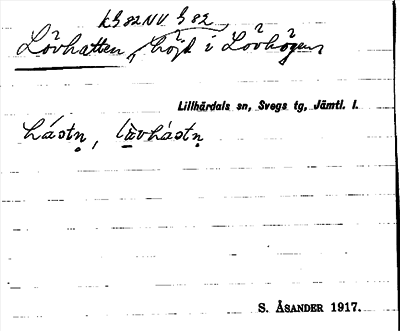 kg 82 NV g 82
Lövhatten, höjd i Lövhögen
Lillhärdals sn, Svegs tg, Jämtl. l.
hástn̥, lòvhástn̥
S. ÅSANDER 1917.